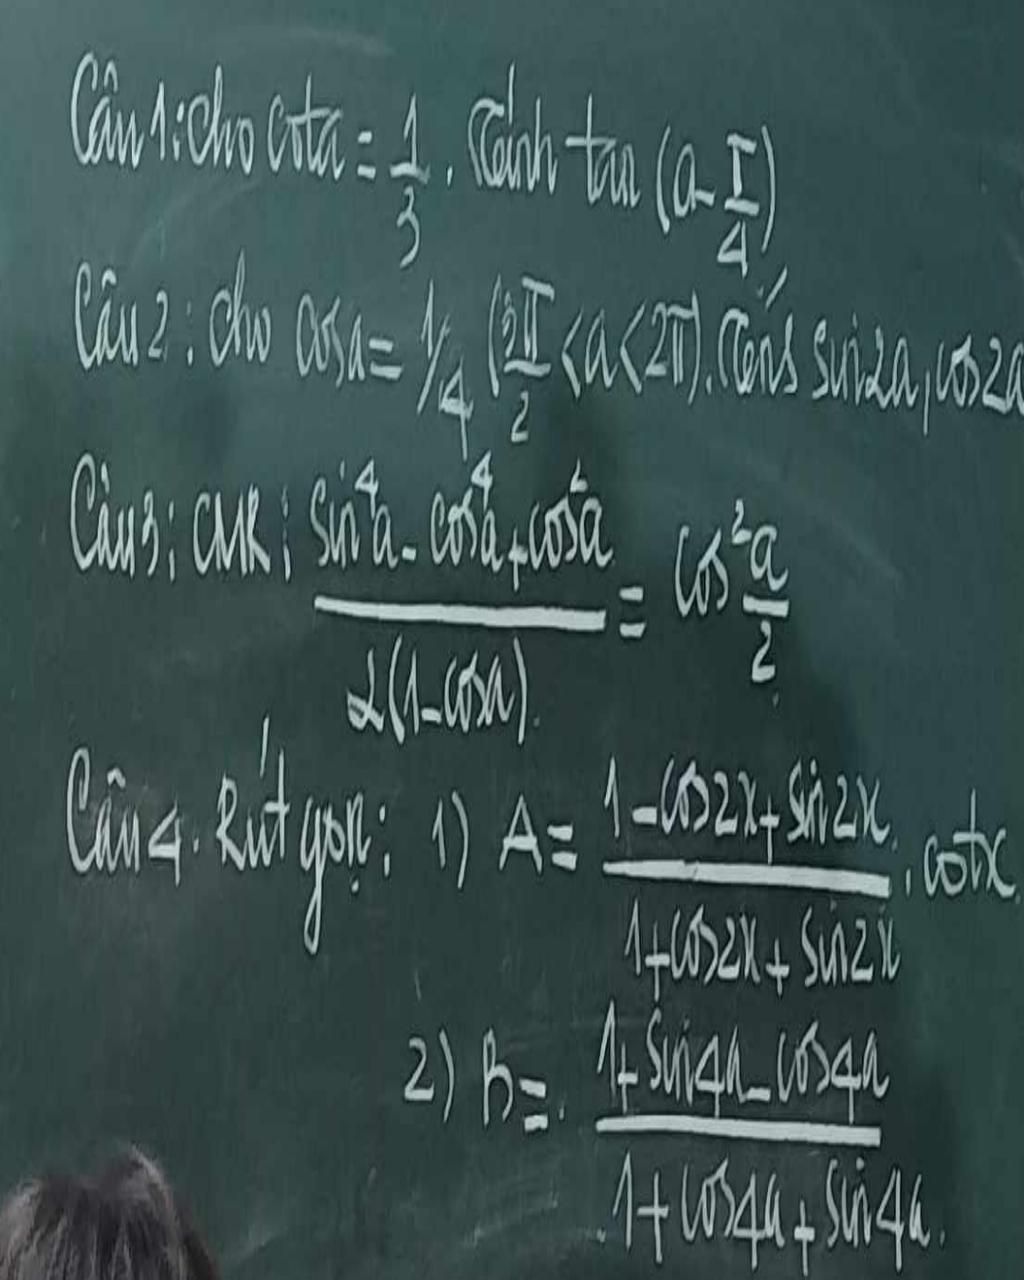 Câu 1: cho cota = 1/3. Tính tan (a - π/4)
Câu 2: cho cosa = 1/4 (3π/2 < a < 2π). Tính sin2a, cos2a
Câu 3: CMR: (sin⁴a - cos⁴a + cos²a) / 2(1 - cosa) = cos² a/2
Câu 4. Rút gọn: 1) A = (1 - cos2x + sin2x) / (1 + cos2x + sin2x) . cotx
2) B = (1 + sin4a - cos4a) / (1 + cos4a + sin4a).